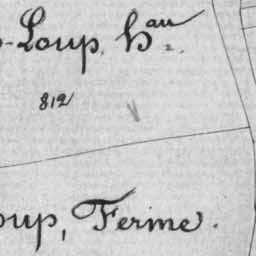 -Loup, hau
812
oup, Ferme.